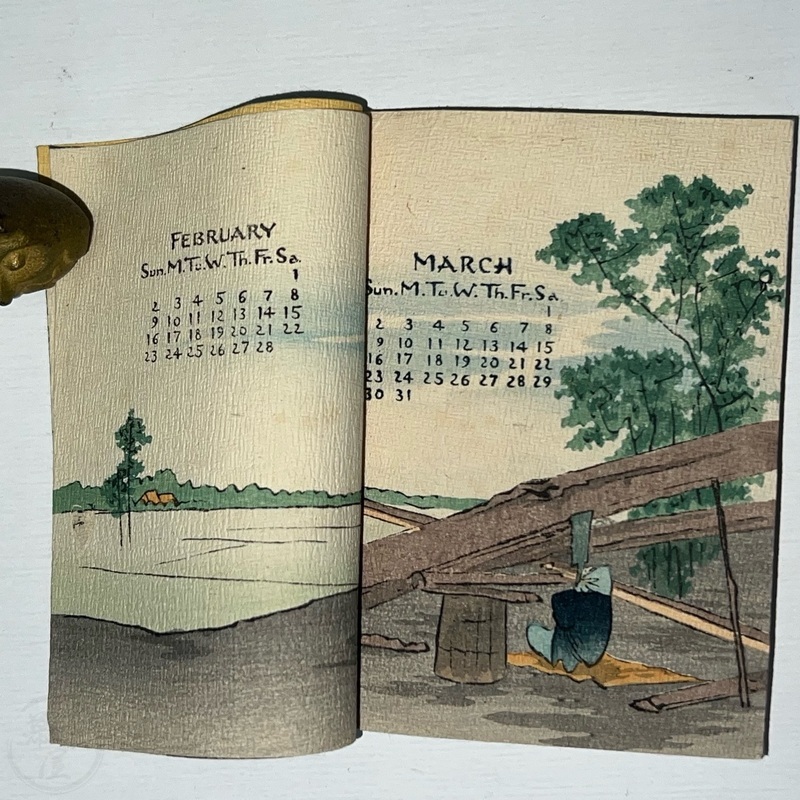 FEBRUARY
Sun. M. Tu. W. Th. Fr. Sa.
1
2 3 4 5 6 7 8
9 10 11 12 13 14 15
16 17 18 19 20 21 22
23 24 25 26 27 28
MARCH
Sun. M. Tu. W. Th. Fr. Sa.
1
2 3 4 5 6 7 8
9 10 11 12 13 14 15
16 17 18 19 20 21 22
23 24 25 26 27 28 29
30 31